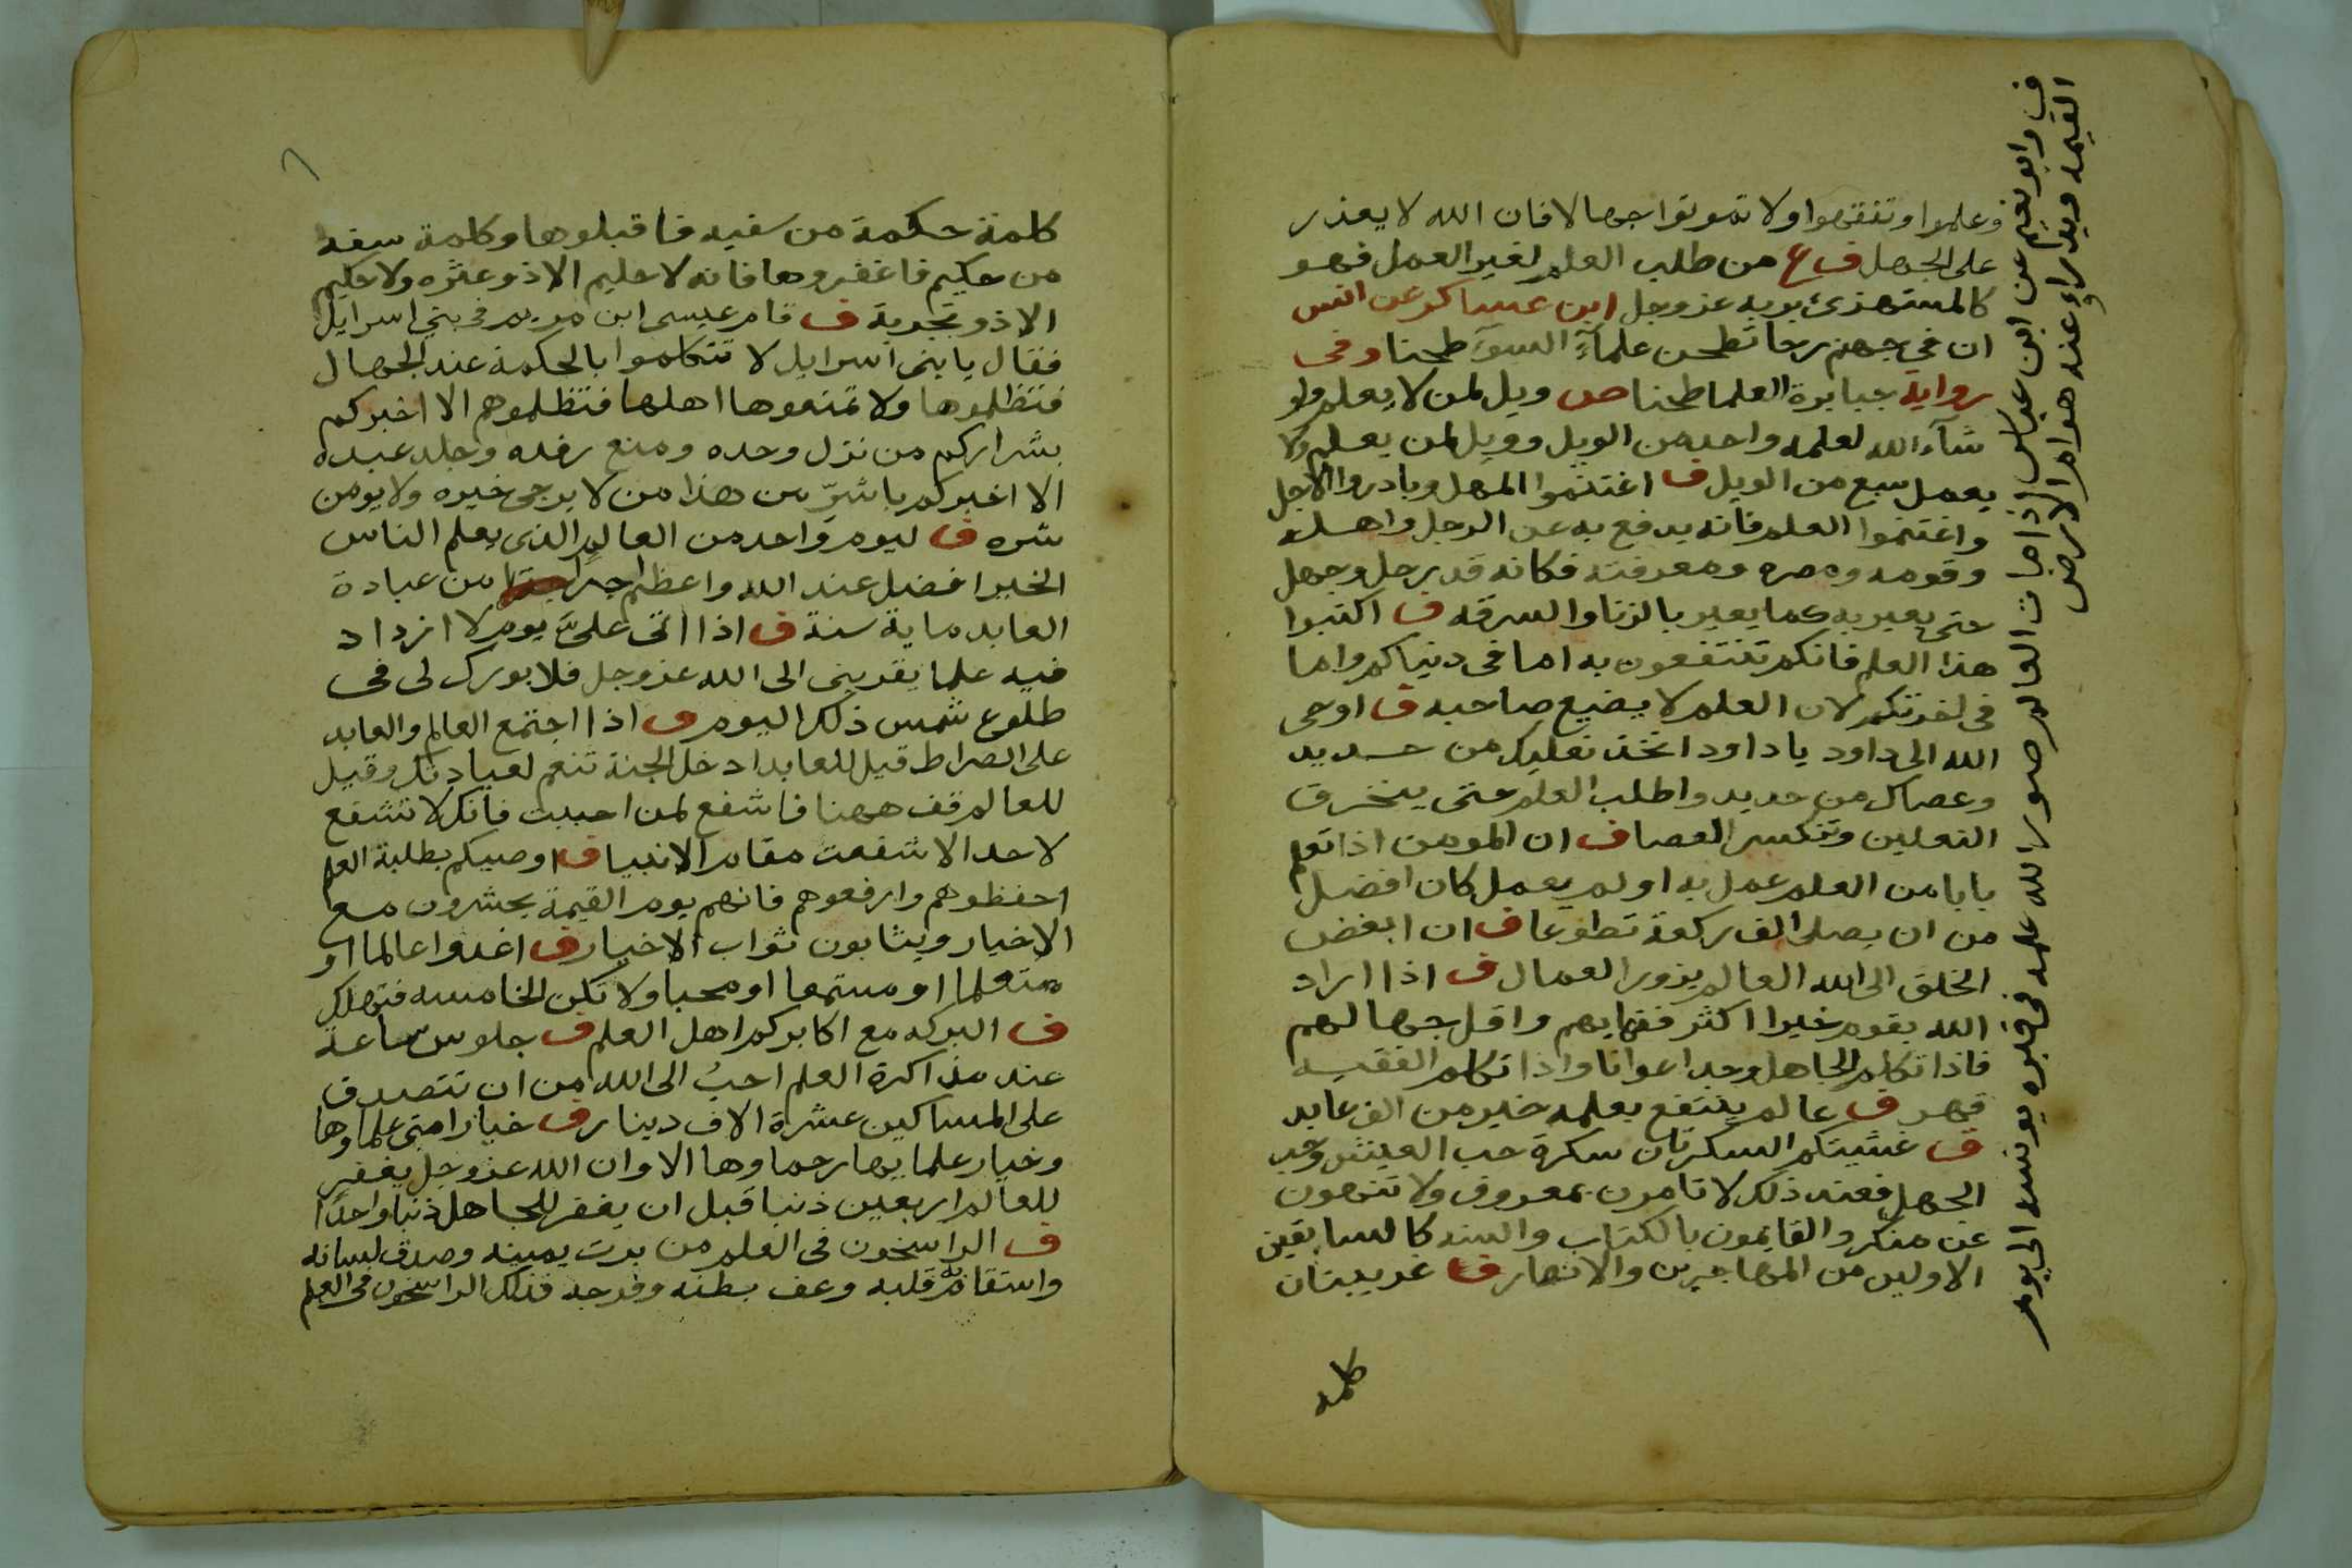 وعلموا وتفقهوا ولا تموتوا جهالا فان الله لا يعذر
على الجهل ف ع من طلب العلم لغير العمل فهو
كالمستهزئ بربه عز وجل ابن عساكر عن انس
ان في جهنم رحا تطحن علمآء السوء طحنا وفى
رواية جبابرة العلما طحنا ص ويل لمن لا يعلم ولو
شآء الله لعلمه واحد من الويل وويل لمن يعلم ولا
يعمل سبع من الويل ف اغتنموا المهل وبادروا الاجل
واغتنموا العلم فانه يدفع به عن الرجل واهله
وقومه ومصره ومعرفته فكانه قد رحل وجهل
حتى يعير به كما يعير بالزنا والسرقه ف اكتبوا
هذا العلم فانكم تنتفعون به اما فى دنياكم واما
فى اخرتكم لان العلم لا يضيع صاحبه ف اوحى
الله الى داود يا داود اتخذ نعليك من حديد
وعصاك من حديد واطلب العلم حتى ينخرق
النعلين وتنكسر العصا ف ان المومن اذا تعلم
بابا من العلم عمل به او لم يعمل كان افضل
من ان يصلى الف ركعة تطوعا ف ان ابغض
الخلق الى الله العالم يزور العمال ف اذا اراد
الله بقوم خيرا اكثر فقهايهم واقل جهالهم
فاذا تكلم الجاهل وجد اعوانا واذا تكلم الفقيه
قهر ف عالم ينتفع بعلمه خير من الف عابد
ف غشيتكم السكرتان سكرة حب العيش وحب
الجهل فعند ذلك لا تامرون بمعروف ولا تنهون
عن منكر والقايمون بالكتاب والسنه كالسابقين
الاولين من المهاجرين والانصار ف غريبتان
كلمه
ف وابو نعيم عن ابن عباس اذا مات العالم صور الله علمه فى قبره يونسه الى يوم
القيمه ويدراء عنه هوام الارض
كلمة حكمة من سفيه فاقبلوها وكلمة سفه
من حكيم فاغفروها فانه لا حليم الا ذو عثره ولا حكيم
الا ذو تجربة ف قام عيسى ابن مريم فى بني اسرايل
فقال يا بنى اسرايل لا تتكلموا بالحكمة عند الجهال
فتظلموها ولا تمنعوها اهلها فتظلموهم الا اخبركم
بشراركم من نزل وحده ومنع رفده وجلد عبده
الا اخبركم باشرّ من هذا من لا يرجى خيره ولا يومن
شره ف ليوم واحد من العالم الذى يعلم الناس
الخير افضل عند الله واعظم اجرا من عبادة
العابد ماية سنة ف اذا اتى علىّ يوم لا ازداد
فيه علما يقربنى الى الله عز وجل فلا بورك لى فى
طلوع شمس ذلك اليوم ف اذا اجتمع العالم والعابد
على الصراط قيل للعابد ادخل الجنة تنعم لعبادتك وقيل
للعالم قف ههنا فاشفع لمن احببت فانك لا تشفع
لاحد الا شفعت مقام الانبيا ف اوصيكم بطلبة العلم
احفظوهم وارفعوهم فانهم يوم القيمة يحشرون مع
الاخيار ويثابون ثواب الاخيار ف اغدوا عالما او
متعلما او مستمعا او محبا ولا تكن الخامسه فتهلك
ف البركه مع اكابركم اهل العلم ف جلوس ساعة
عند مذاكرة العلم احبُ الى الله من ان تتصدق
على المساكين عشرة الاف دينار ف خيار امتى علماوها
وخيار علمايها رحماوها الا وان الله عز وجل يغفر
للعالم اربعين ذنبا قبل ان يغفر للجاهل ذنبا واحدًا
ف الراسخون فى العلم من برت يمينه وصدق لسانه
واستقام قلبه وعف بطنه وفرجه فذلك الراسخون فى العلم